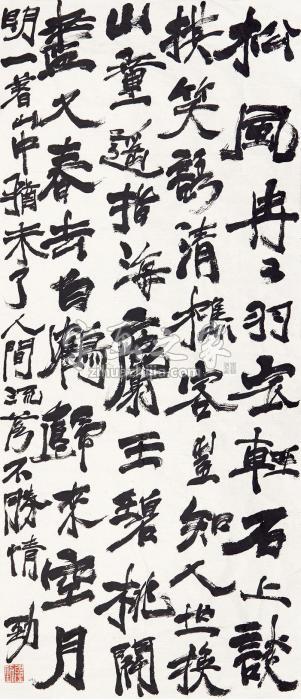 松風冉々羽衣輕石上談
棋笑語清樵客豈知人世換
山童遙指海塵生碧桃開
盡又春去白鶴歸來空月
明一著山中猶未了人間流落不勝情 勁